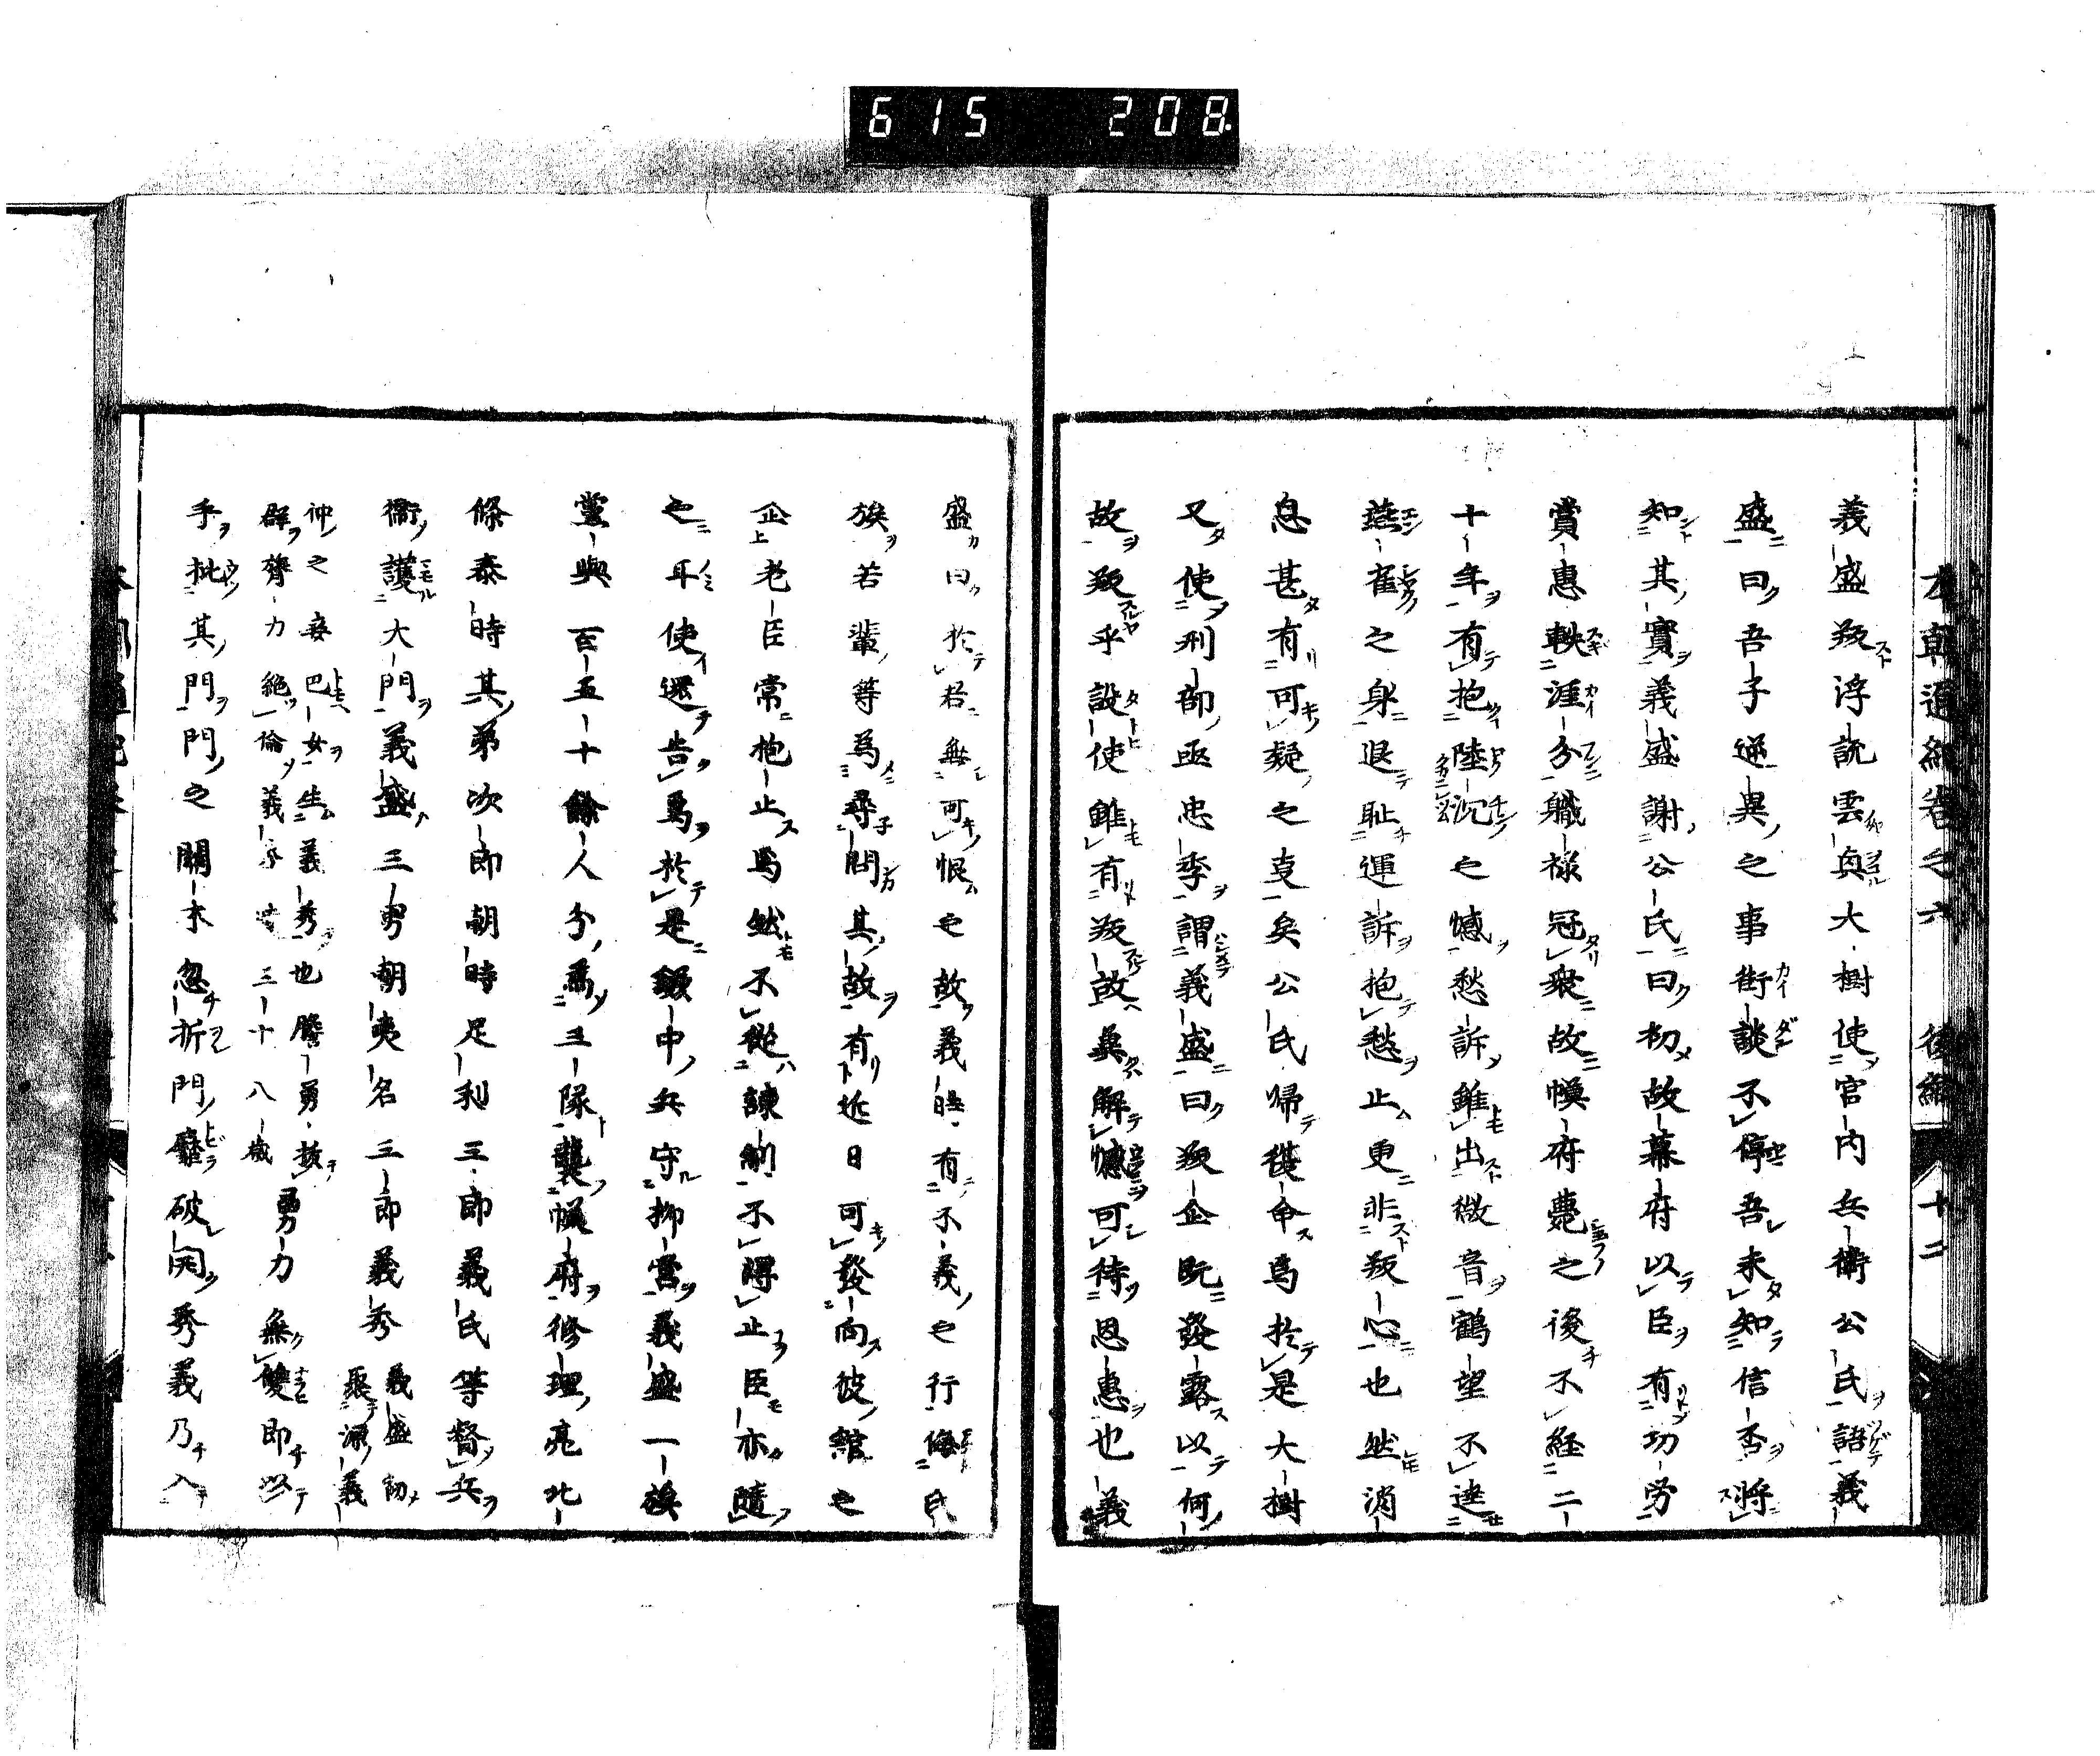 615 208
本朝通紀巻之六 後編 十二
義盛叛浮説雲 大樹使官内兵衛公氏語義
盛曰吾子逆異之事街談不停吾未知信否将
知其實義盛謝公氏曰初故幕府以臣有功労
賞惠軼涯分職禄冠衆故幕府薨之後不経二
十年有抱陸沉之憾愁訴雖出微音鶴望不達
燕雀之身退耻運訴抱愁止更非叛心也然消
息甚有可疑之支矣公氏帰従命焉於是大樹
又使刑部亟忠季謂義盛曰叛企既發露以何
故叛乎設使雖有叛故 解憾可待恩惠也義
盛曰於君無可恨也故義時有不義之行侮氏
族若輩等為尋問其故有近日可發向彼館之
企老臣常抱止焉然不從諫制不得止臣亦随
之耳使還告焉於是鎌中兵守抑営義盛一族
黨與百五十餘人分為三隊襲幄府修理亮北
條泰時其弟次郎朝時足利三郎義氏等督兵
衛護大門義盛三男朝夷名三郎義秀 義盛初聚源義
仲之妾巴女生義秀也膽勇抜
群膂力絶倫義 三十八歳 勇力無雙即以
手批其門門之關木忽折門靡破開秀義乃入